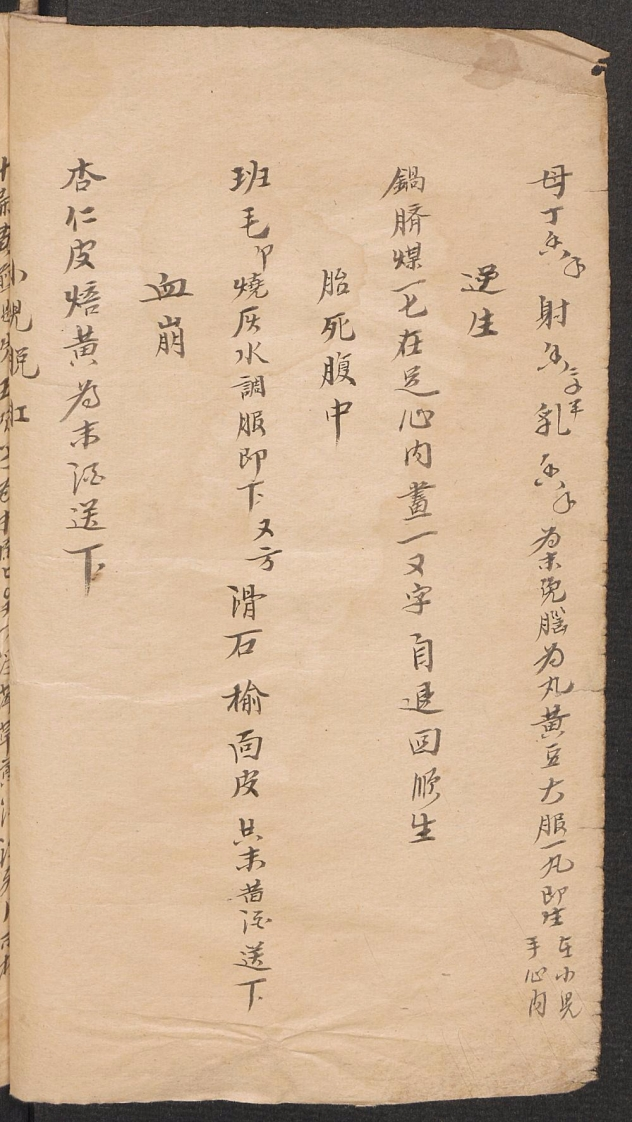 母丁香 射香 乳香 為末兔腦為丸黃豆大服一丸即生 在小児手心內
逆生
鍋臍煤一七在足心內畫一又字自退回順生
胎死腹中
班毛 燒灰水調服即下 又方 滑石 榆面皮 共末昔酒送下
血崩
杏仁皮焙黃為末酒送下
小児脱肛